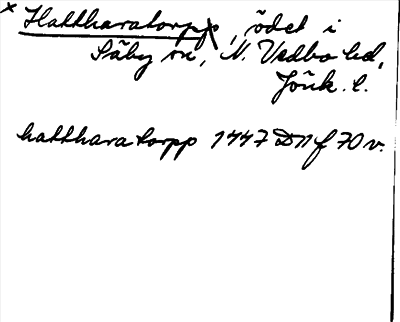 × Hattharatorp, ödet i
Säby sn, N. Vedbo hd,
Jönk. l.
hattharatorpp 1447 D11 f 70 v.